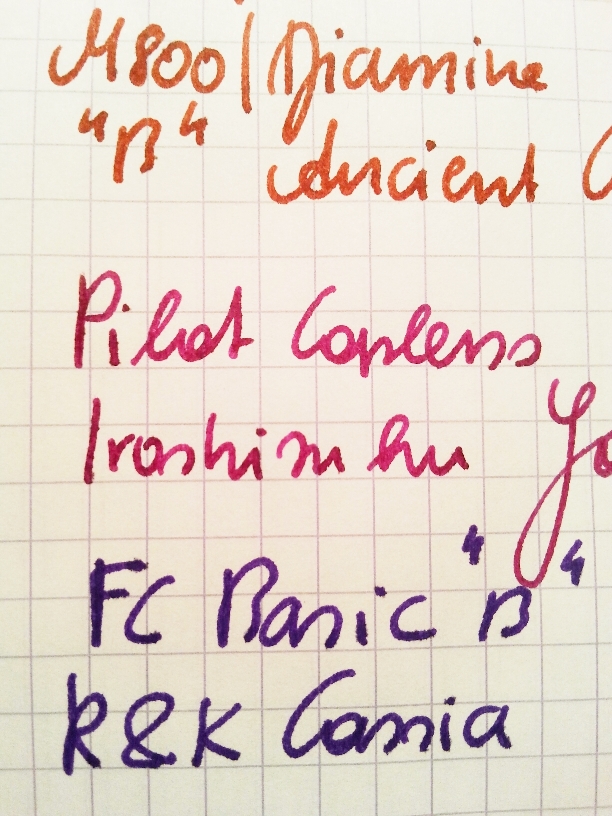 M800 / Diamine
"B" Ancient C
Pilot Capless
Iroshizuku Yo
FC Basic "B"
R&K Cassia